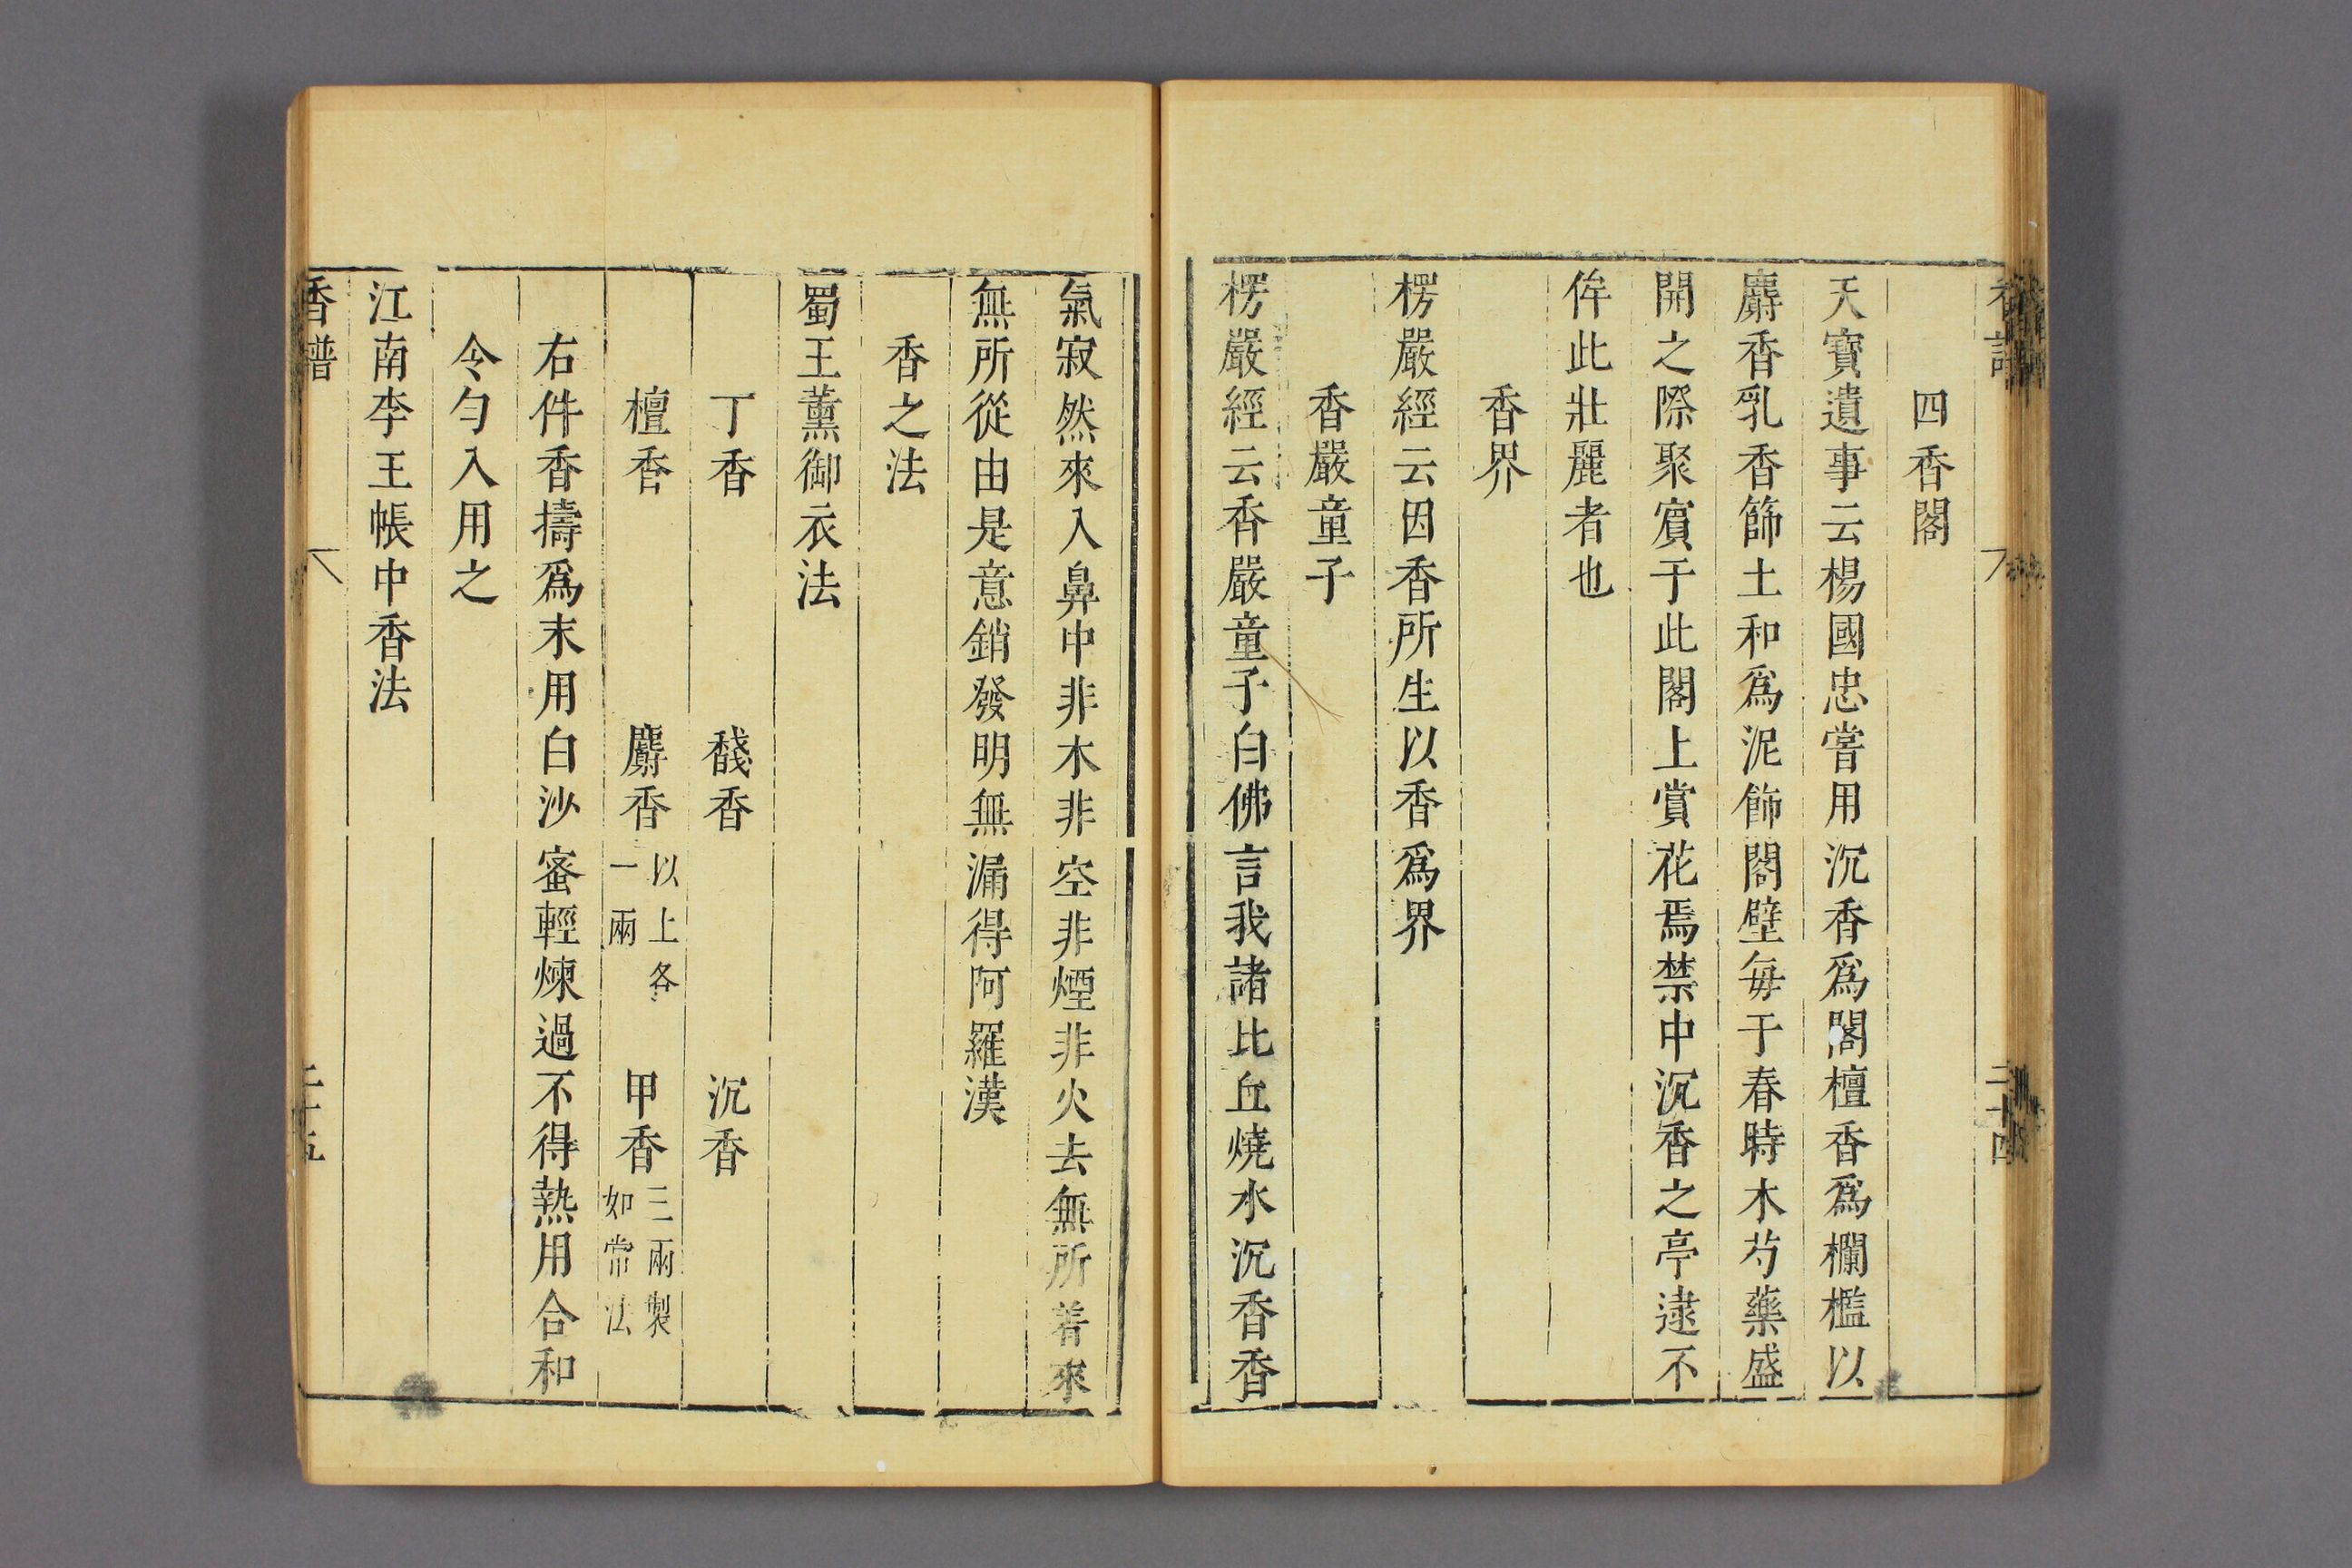 香譜
二十四
四香閣
天寶遺事云楊國忠嘗用沉香爲閣檀香爲欄檻以
麝香乳香篩土和爲泥飾閣壁毎于春時木芍藥盛
開之際聚賔于此閣上賞花焉禁中沉香之亭逮不
侔此壯麗者也
香界
楞嚴經云因香所生以香爲界
香嚴童子
楞嚴經云香嚴童子白佛言我諸比丘燒水沉香香
氣寂然來入鼻中非木非空非煙非火去無所着來
無所從由是意銷發明無漏得阿羅漢
香之法
蜀王薰御衣法
丁香 馢香 沉香
檀香 麝香 以上各一兩 甲香 三兩製如常法
右件香擣爲末用白沙蜜輕煉過不得熱用合和
令勻入用之
江南李王帳中香法
香譜
二十五